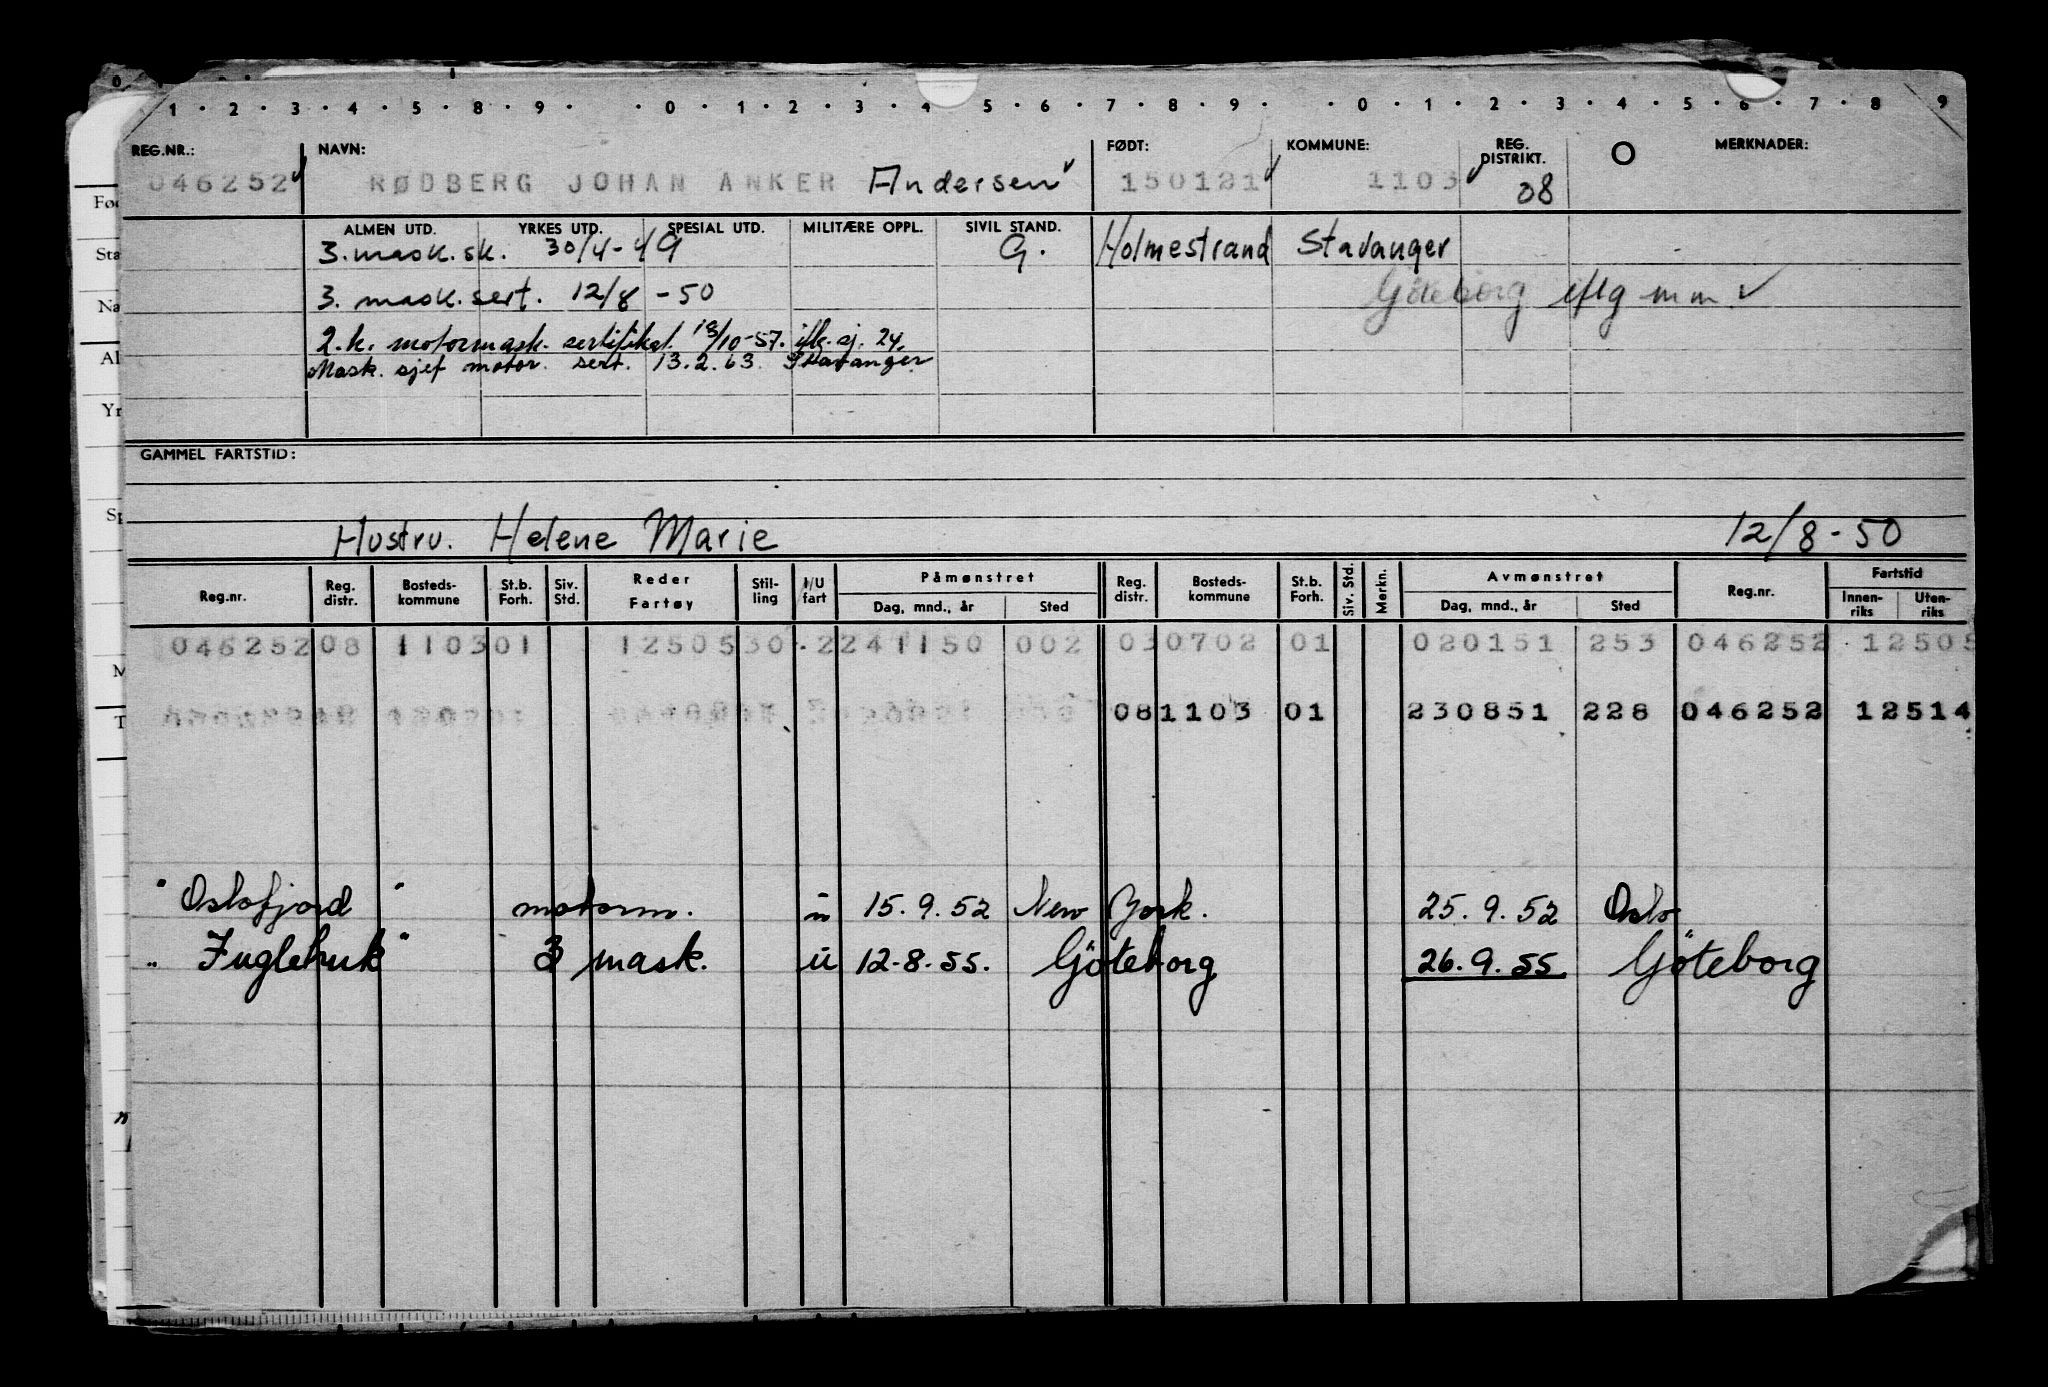 0
1 · 2 · 3 · 4 · 5 · 8 · 9 · · 0 · 1 · 2 · 3 · 4 · 5 · 6 · 7 · 8 · 9 · · 0 · 1 · 2 · 3 · 4 · 5 · 6 · 7 · 8 9
REG.NR.: NAVN: FØDT: KOMMUNE: REG. DISTRIKT. O MERKNADER:
046252 RØDBERG JOHAN ANKER Andersen 150121 1103 08
ALMEN UTD. YRKES UTD. SPESIAL UTD. MILITÆRE OPPL. SIVIL STAND.
3. mask. sk. 30/4-49 G. Holmestrand Stavanger
3. mask. sert. 12/8 -50 Göteborg iflg m m
2. k. motormask. sertifikat. 18/10-57. iflg. sj. 24.
Mask. sjef motor. sert. 13.2.63. Stavanger
GAMMEL FARTSTID:
Hustru. Helene Marie 12/8-50
Reg.nr. Reg. distr. Bosteds-kommune St.b. Forh. Siv. Std. Reder Fartøy Stil-ling I/U fart Påmønstret Reg. distr. Bosteds-kommune St.b. Forh. Siv. Std. Merkn. Avmønstret Reg.nr. Fartstid
Dag, mnd., år Sted Dag, mnd., år Sted Innen-riks Uten-riks
046252 08 1103 01 12505 30 · 2 241150 002 03 0702 01 020151 253 046252 · 12505
08 1103 01 230851 228 046252 12514
"Oslofjord" motorm. u 15.9.52 New York. 25.9.52 Oslo
"Fuglehuk" 3 mask. u 12-8-55. Göteborg 26.9.55 Göteborg
Fød
Sta
Na
Al
Yr
Sp
M
T